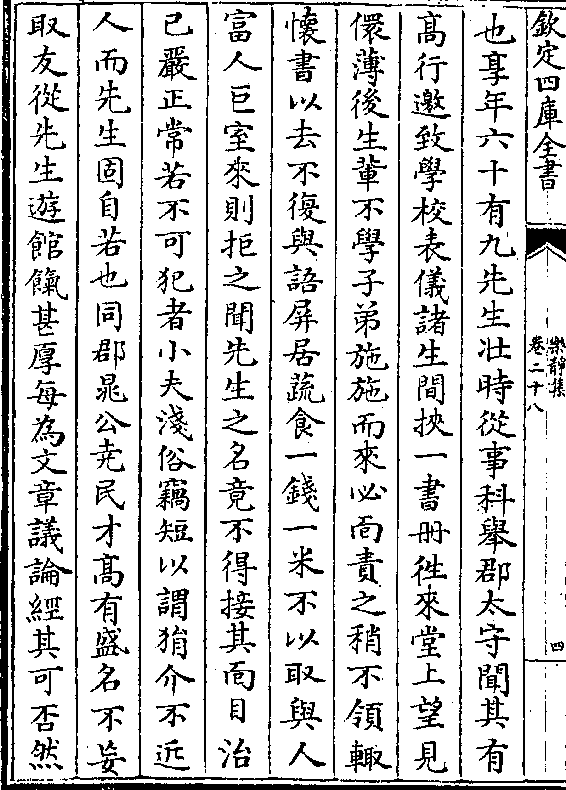 欽定四庫全書
樂靜集
卷二十八
四
也享年六十有九先生壯時從事科舉郡太守聞其有
髙行邀致學校表儀諸生間挾一書册徃來堂上望見
儇薄後生軰不學子弟施施而來必面責之稍不領輙
懐書以去不復與語屏居蔬食一錢一米不以取與人
富人巨室來則拒之聞先生之名竟不得接其面目治
已嚴正常若不可犯者小夫淺俗竊短以謂狷介不近
人而先生固自若也同郡晁公尭民才髙有盛名不妄
取友從先生遊館餼甚厚每為文章議論經其可否然